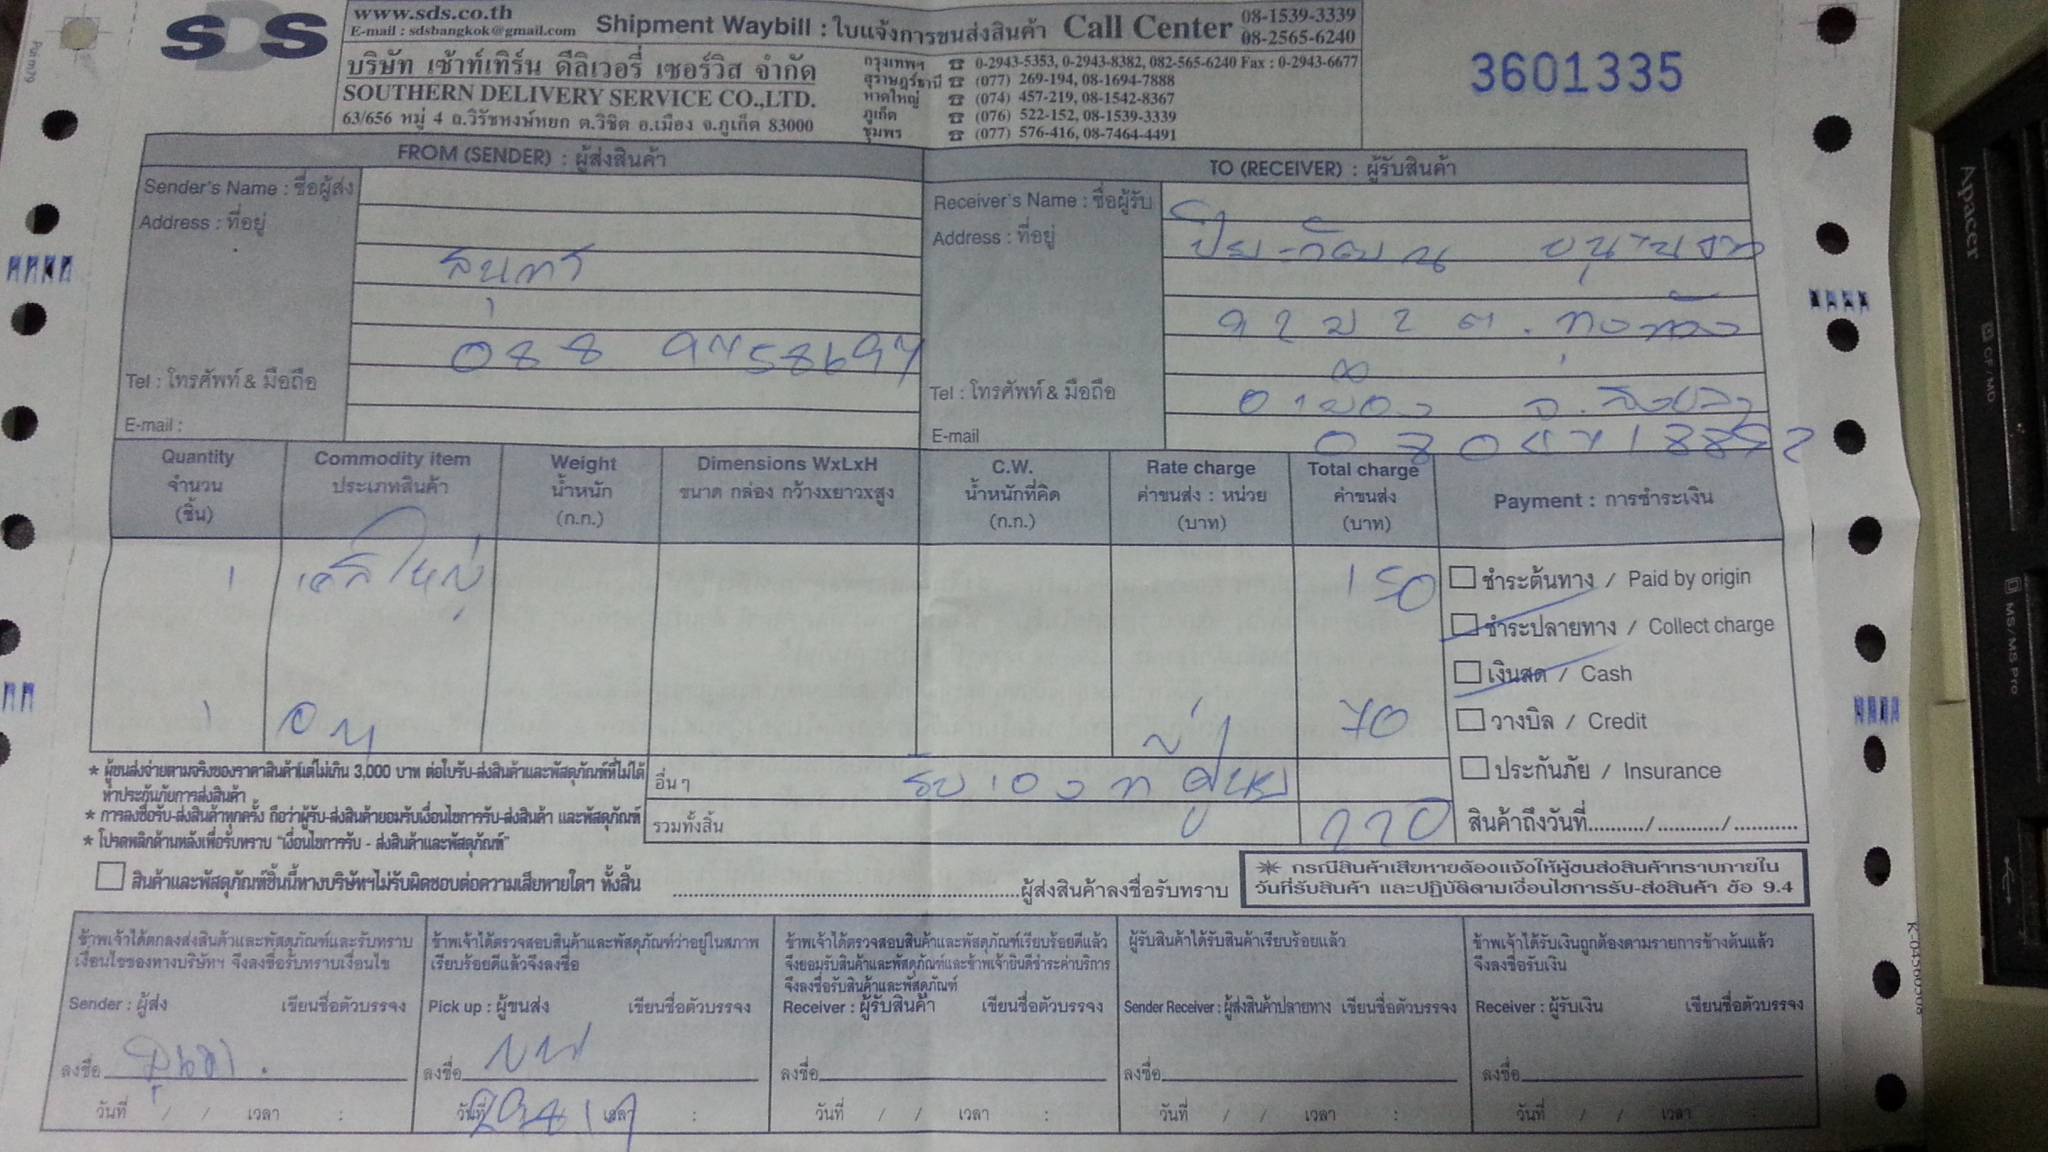 SDS
www.sds.co.th
E-mail : sdsbangkok@gmail.com
Shipment Waybill : ใบแจ้งการขนส่งสินค้า Call Center 08-1539-3339
08-2565-6240
บริษัท เซ้าท์เทิร์น ดีลิเวอรี่ เซอร์วิส จำกัด
SOUTHERN DELIVERY SERVICE CO.,LTD.
63/656 หมู่ 4 ถ.วิรัชหงษ์หยก ต.วิชิต อ.เมือง จ.ภูเก็ต 83000
กรุงเทพฯ ☎ 0-2943-5353, 0-2943-8382, 082-565-6240 Fax : 0-2943-6677
สุราษฎร์ธานี ☎ (077) 269-194, 08-1694-7888
หาดใหญ่ ☎ (074) 457-219, 08-1542-8367
ภูเก็ต ☎ (076) 522-152, 08-1539-3339
ชุมพร ☎ (077) 576-416, 08-7464-4491
3601335
FROM (SENDER) : ผู้ส่งสินค้า
TO (RECEIVER) : ผู้รับสินค้า
Sender's Name : ชื่อผู้ส่ง
Address : ที่อยู่
สุนทร
088 9758697
Tel : โทรศัพท์ & มือถือ
E-mail :
Receiver's Name : ชื่อผู้รับ
Address : ที่อยู่
Tel : โทรศัพท์ & มือถือ
E-mail
Quantity จำนวน (ชิ้น)
Commodity item ประเภทสินค้า
Weight น้ำหนัก (ก.ก.)
Dimensions WxLxH ขนาด กล่อง กว้างxยาวxสูง
C.W. น้ำหนักที่คิด (ก.ก.)
Rate charge ค่าขนส่ง : หน่วย (บาท)
Total charge ค่าขนส่ง (บาท)
Payment : การชำระเงิน
1 ใหญ่ 150
1 70
ชำระต้นทาง / Paid by origin
ชำระปลายทาง / Collect charge
เงินสด / Cash
วางบิล / Credit
ประกันภัย / Insurance
สินค้าถึงวันที่........../.........../...........
* ผู้ขนส่งจ่ายตามจริงของราคาสินค้าแต่ไม่เกิน 3,000 บาท ต่อใบรับ-ส่งสินค้าและพัสดุภัณฑ์ที่ไม่ได้
ทำประกันภัยการส่งสินค้า
* การลงชื่อรับ-ส่งสินค้าทุกครั้ง ถือว่าผู้รับ-ส่งสินค้ายอมรับเงื่อนไขการรับ-ส่งสินค้า และพัสดุภัณฑ์
* โปรดพลิกด้านหลังเพื่อรับทราบ "เงื่อนไขการรับ - ส่งสินค้าและพัสดุภัณฑ์"
อื่น ๆ
รวมทั้งสิ้น 220
สินค้าและพัสดุภัณฑ์ชิ้นนี้ทางบริษัทฯไม่รับผิดชอบต่อความเสียหายใดๆ ทั้งสิ้น ........................................ผู้ส่งสินค้าลงชื่อรับทราบ
กรณีสินค้าเสียหายต้องแจ้งให้ผู้ขนส่งสินค้าทราบภายใน
วันที่รับสินค้า และปฏิบัติตามเงื่อนไขการรับ-ส่งสินค้า ข้อ 9.4
ข้าพเจ้าได้ตกลงส่งสินค้าและพัสดุภัณฑ์และรับทราบ
เงื่อนไขของทางบริษัทฯ จึงลงชื่อรับทราบเงื่อนไข
Sender : ผู้ส่ง เขียนชื่อตัวบรรจง
ลงชื่อ
วันที่ / / เวลา :
ข้าพเจ้าได้ตรวจสอบสินค้าและพัสดุภัณฑ์ว่าอยู่ในสภาพ
เรียบร้อยดีแล้วจึงลงชื่อ
Pick up : ผู้ขนส่ง เขียนชื่อตัวบรรจง
ลงชื่อ
วันที่ เวลา :
ข้าพเจ้าได้ตรวจสอบสินค้าและพัสดุภัณฑ์เรียบร้อยดีแล้ว
จึงยอมรับสินค้าและพัสดุภัณฑ์และข้าพเจ้ายินดีชำระค่าบริการ
จึงลงชื่อรับสินค้าและพัสดุภัณฑ์
Receiver : ผู้รับสินค้า เขียนชื่อตัวบรรจง
ลงชื่อ
วันที่ / / เวลา :
ผู้รับสินค้าได้รับสินค้าเรียบร้อยแล้ว
Sender Receiver : ผู้ส่งสินค้าปลายทาง เขียนชื่อตัวบรรจง
ลงชื่อ
วันที่ / / เวลา :
ข้าพเจ้าได้รับเงินถูกต้องตามรายการข้างต้นแล้ว
จึงลงชื่อรับเงิน
Receiver : ผู้รับเงิน เขียนชื่อตัวบรรจง
ลงชื่อ
วันที่ / / เวลา :
Apacer
CF/MD
MS/MS Pro